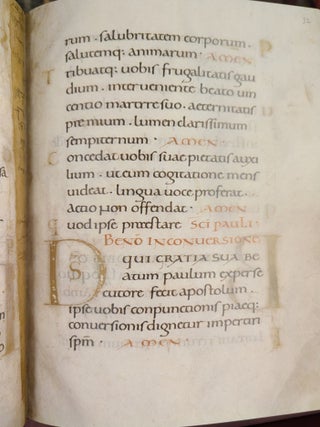 32
rum · salubritatem corporum ·
salutemq: animarum · AMEN
Tribuatq: uobis frugalitatis gau
dium · interueniente beato uin
centio martyre suo · aeternitatis
premium · lumen clarissimum
sempiternum · AMEN
Concedat uobis suae pietatis auxi
lium · ut cum cogitatione mens
uideat · lingua uoce proferat ·
actio non offendat · AMEN
Quod ipse praestare Sci Pauli ·
BEND IN CONUERSIONE
DS QUI GRATIA SUA BE
atum paulum ex perse
cutore fecit apostolum ·
ipse uobis conpunctionis piaeq:
conuersionis dignetur impertiri
spm · AMEN ·